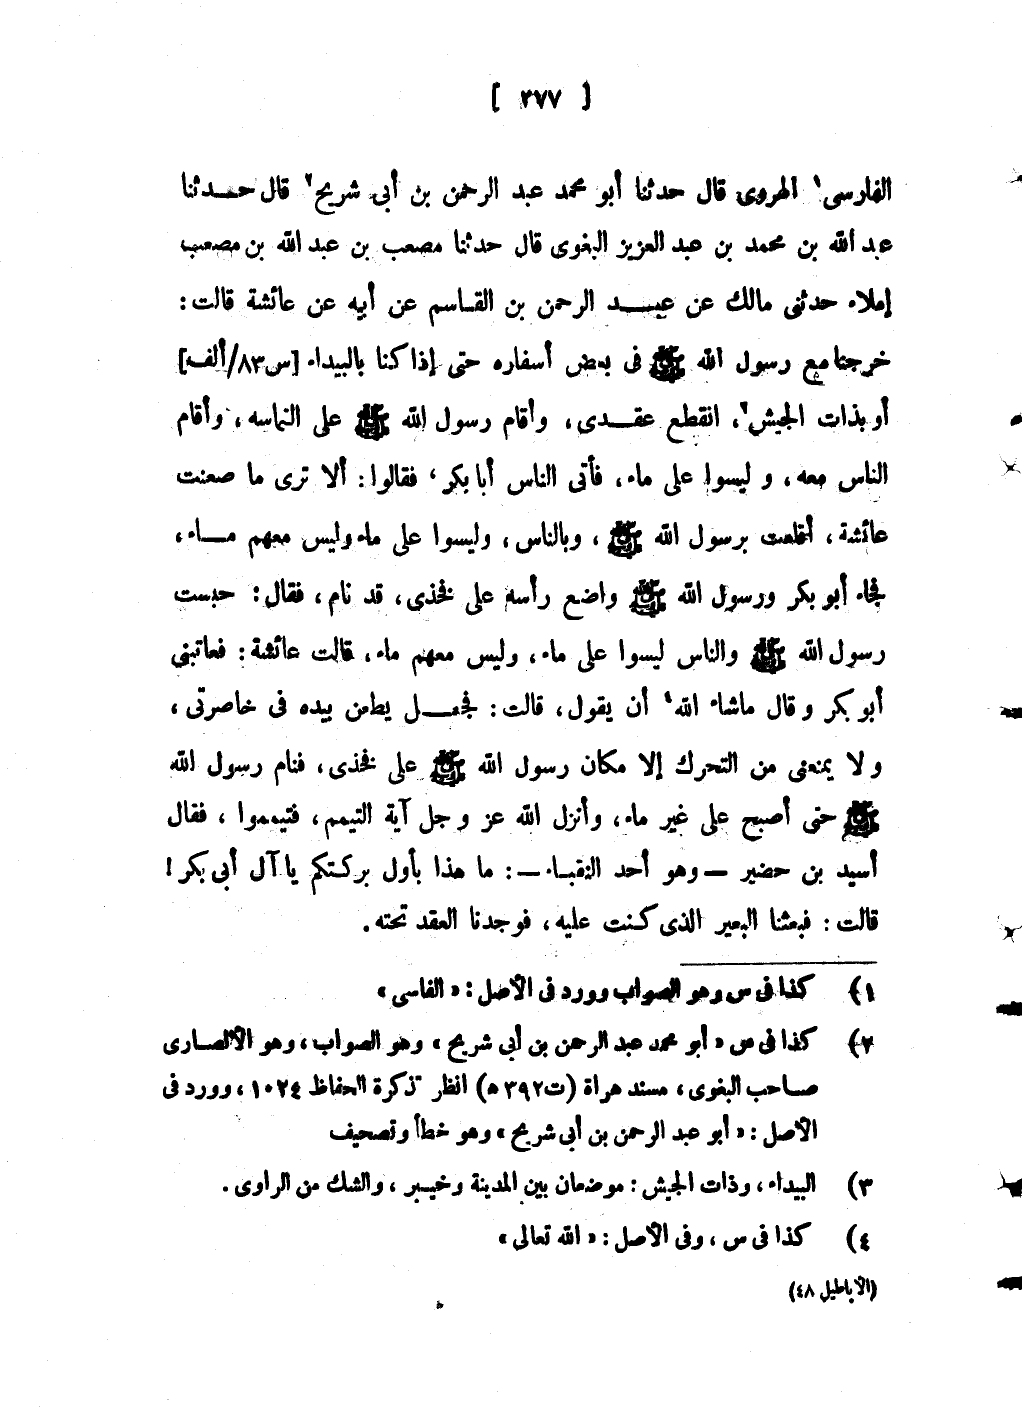 [ ٣٧٧ ]
الفارسى١ الهروى قال حدثنا أبو محمد عبد الرحمن بن أبى شريح٢ قال حـــدثنا
عبد الله بن محمد بن عبد العزيز البغوى قال حدثنا مصعب بن عبد الله بن مصعب
إملاء حدثنى مالك عن عبـــد الرحمن بن القـاسم عن أبيه عن عائشة قالت :
خرجنا مع رسول الله ﷺ فى بعض أسفاره حتى إذا كنا بالبيداء [س٨٣/ألف]
أو بذات الجيش٣، انقطع عقــدى، وأقام رسول الله ﷺ على التماسه، وأقام
الناس معه، و ليسوا على ماء، فأتى الناس أبا بكر، فقالوا: ألا ترى ما صنعت
عائشة، أقامت برسول الله ﷺ، وبالناس، وليسوا على ماء وليس معهم مـــاء،
فجاء أبو بكر ورسول الله ﷺ واضع رأسه على فخذى، قد نام، فقال: حبست
رسول الله ﷺ والناس ليسوا على ماء، وليس معهم ماء، قالت عائشة: فعاتبنى
أبو بكر و قال ماشاء الله٤ أن يقول، قالت: فجعــل يطعن بيده فى خاصرتى،
و لا يمنعنى من التحرك إلا مكان رسول الله ﷺ على فخذى، فنام رسول الله
ﷺ حتى أصبح على غير ماء، وأنزل الله عز و جل آية التيمم، فتيمموا، فقال
أسيد بن حضير — وهو أحد النقبـاء —: ما هذا بأول بركـتكم يا آل أبى بكر!
قالت: فبعثنا البعير الذى كـنت عليه، فوجدنا العقد تحته.
١) كذا فى س وهو الصواب وورد فى الأصل: «الفاسى»
٢) كذا فى س «أبو محمد عبد الرحمن بن أبى شريح» وهو الصواب، وهو الأنصـارى
صـاحب البغوى، مسند هراة (ت٣٩٢ﻫ) انظر تذكرة الحفاظ ١٠٢٤، وورد فى
الأصل: «أبو عبد الرحمن بن أبى شريح» وهو خطأ وتصحيف
٣) البيداء، وذات الجيش: موضعان بين المدينة وخيـبر، والشك من الراوى.
٤) كذا فى س، وفى الأصل: «الله تعالى»
(الأباطيل ٤٨)